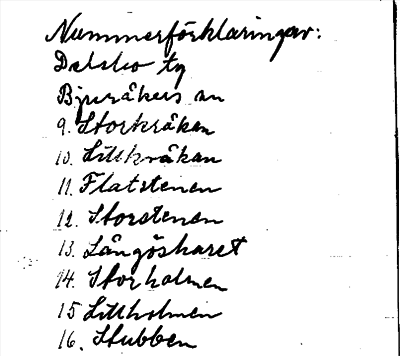 Nummerförklaringar:
Delsbo tg
Bjuråkers sn
9. Storkråkan
10. Lillkråkan
11. Flatstenen
12. Storstenen
13. Långöskaret
14. Storholmen
15 Lillholmen
16. Stubben